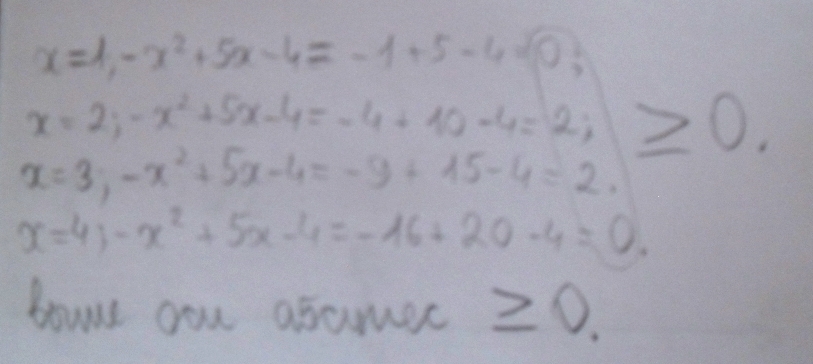 x=1; -x² + 5x - 4 = -1 + 5 - 4 = 0;
x = 2; -x² + 5x - 4 = -4 + 10 - 4 = 2; ≥ 0.
x = 3; -x² + 5x - 4 = -9 + 15 - 4 = 2.
x = 4; -x² + 5x - 4 = -16 + 20 - 4 = 0.
выше оси абсцисс ≥ 0.